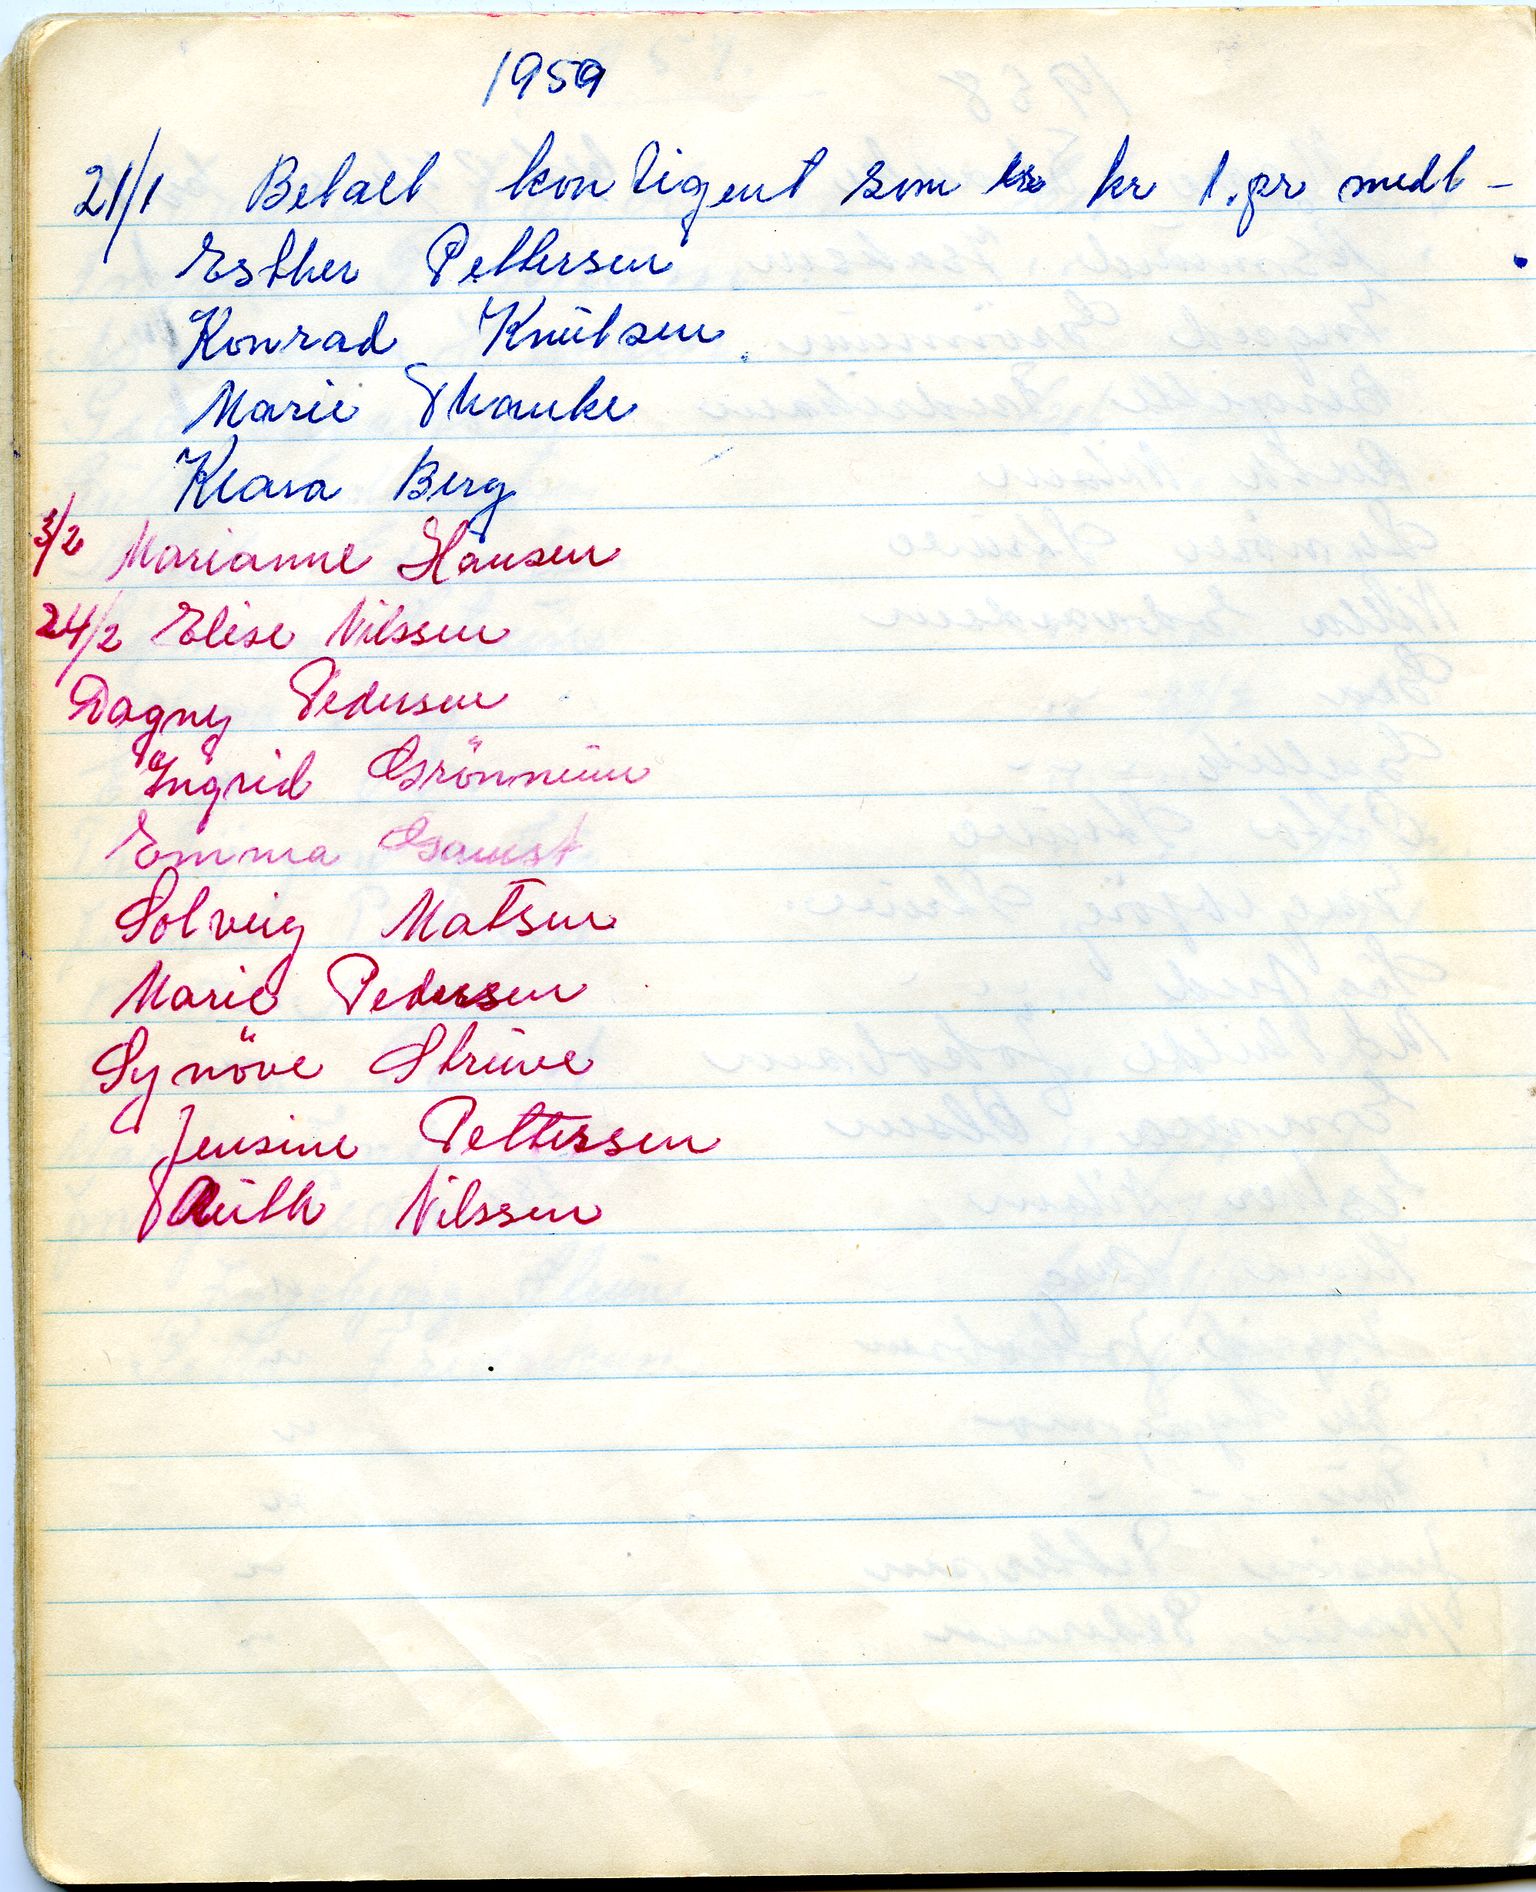 1959
21/1 Betalt kontigent som er kr 1. pr medl -
Esther Pettersen
Konrad Knütsen
Marie Thauke
Klara Berg
3/2 Marianne Hansen
24/2 Elise Nilssen
Dagny Pedersen
Ingrid Grönneüm
Emma Gamst
Solveig Matsen
Marie Pederssen
Synöve Strüve
Jensine Pettersen
Rüth Nilssen